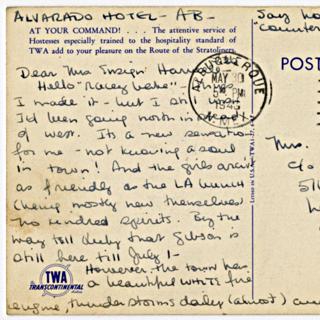 ALVARADO HOTEL - AB -
AT YOUR COMMAND! . . . The attentive service of
Hostesses especially trained to the hospitality standard of
TWA add to your pleasure on the Route of the Stratoliners.
Say
"counter
POST
ALBUQUERQUE
MAY 30
5 PM
1945
N. MEX.
Dear Mrs Ensign
Hello
I made it - but I
I'd been going north in
of west. It's a new sensation
for me - not knowing a soul
in town! And the girls
as friendly as the LA bunch
being mostly new themselves
no kindred spirits. By the
way tell that Gibson is
still here till July!-
However, the town has
a beautiful white fire
engine, thunder storms daily (almost)
Mrs.
c/o
TWA
TRANSCONTINENTAL
Airline